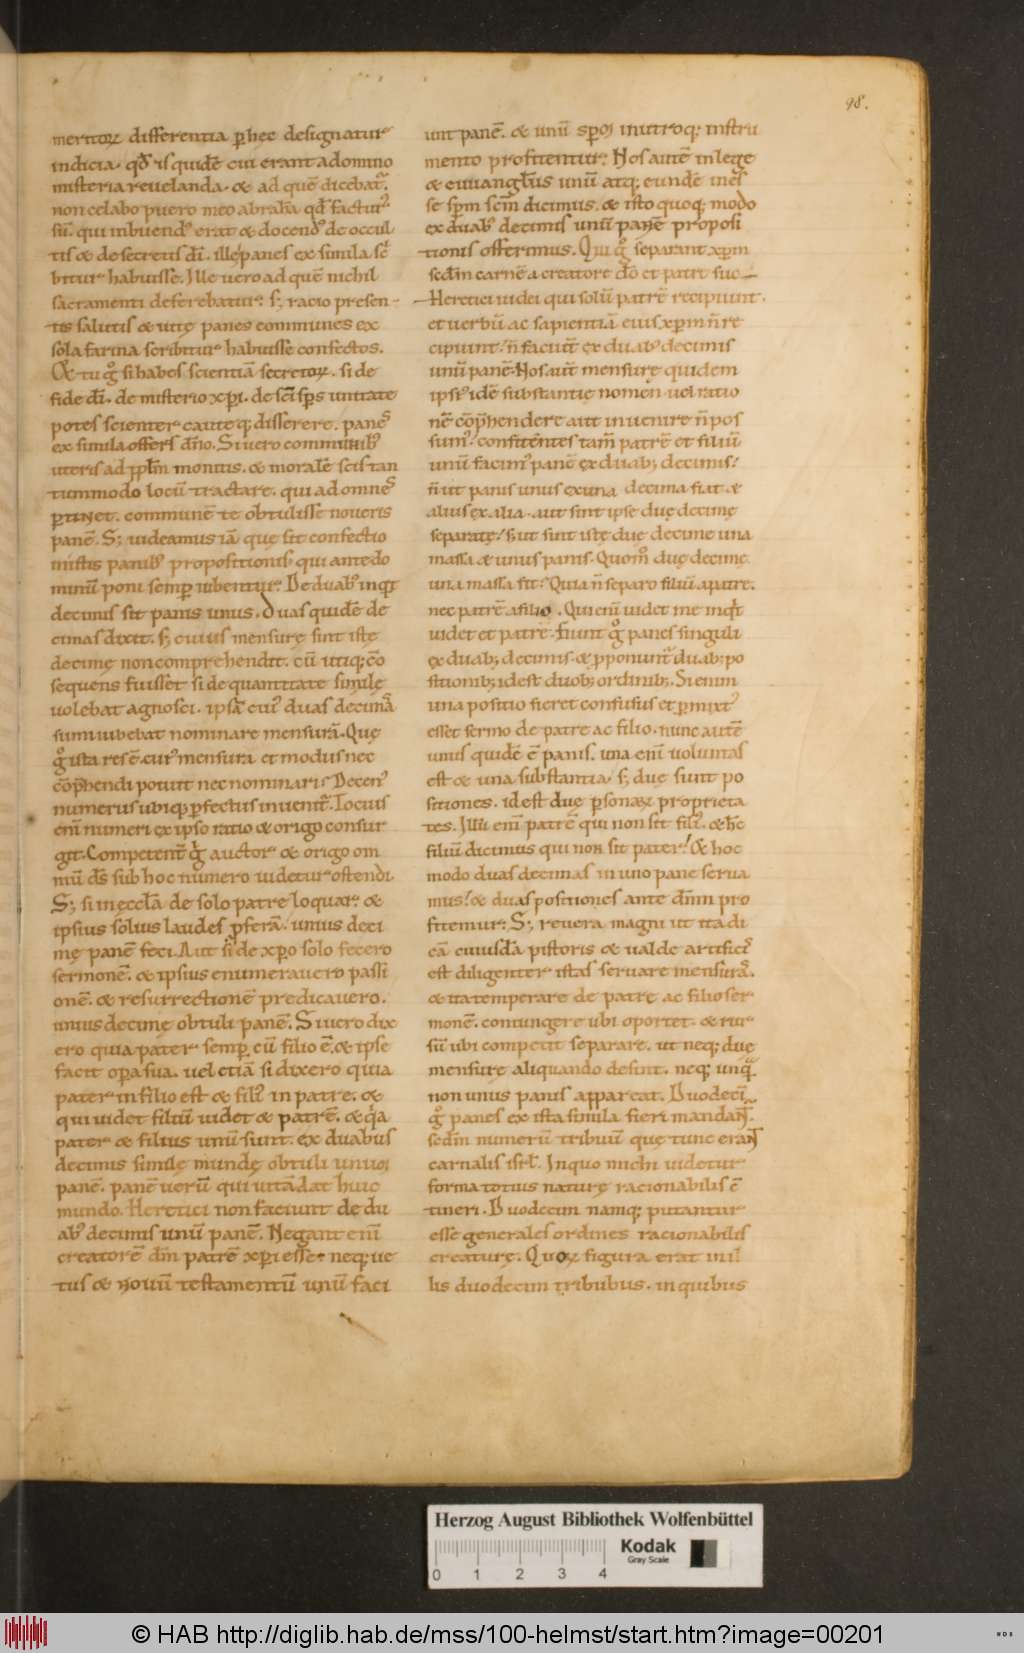 98.
meritoꝝ differentia ꝑ hec designatur
indicia. qd̄ is quidē cui erant a domino
misteria reuelanda. & ad quē dicebat᷑.
non celabo puero meo abrahā qd̄ factur᷒
sū. qui inbuend᷒ erat & docend᷒ de occul
tis & de secretis dī. ille panes ex simila sc̄
bitur habuisse. Ille uero ad quē nichil
sacramenti deferebatur. sꝫ racio presen-
tis salutis & uitę panes communes ex
sola farina scribitur habuisse confectos.
& tu gͦ si habes scientiā secretoꝝ. si de
fide dī. de misterio xp̄i. de sc̄i sp̄s unitate
potes scienter cauteqꝫ disserere. panē
ex simila offers dn̄o. Si uero communib᷒
uteris ad ppl̄m monitis. & moralē scis tan
tummodo locū tractare. qui ad omnes
ꝑtinet. communē te obtulisse noueris
panē. Sꝫ uideamus iā quę sit confectio
mistis panib᷒ propositionis qui ante do
minū poni semꝑ iubentur. De duab᷒ inqt
decimis sit panis unus. Duas quidē de
cimas dixit. sꝫ cuius mensurę sint istę
decimę non comprehendit. cū utiqꝫ cō
sequens fuisset si de quantitate similę
uolebat agnosci. ipsā cui᷒ duas decimā
sumi iubebat nominare mensurā. Quę
gͦ ista res ē. cui᷒ mensura et modus nec
cōp̄hendi potuit nec nominari? Decen᷒
numerus ubiqꝫ ꝑfectus inuenit᷑. Tocius
enī numeri ex ipso ratio & origo consur
git. Competent̄ gͦ auctor & origo om
niū d̄s sub hoc numero uidetur ostendi.
Sꝫ si in ęccl̄a de solo patre loquar. &
ipsius solius laudes ꝓferā. unius deci
mę panē feci. Aut si de xp̄o solo fecero
sermonē. & ipsius enumerauero passi
onē. & resurrectionē predicauero.
unius decimę obtuli panē. Si uero dix
ero quia pater semꝑ cū filio ē. & ipse
facit oꝑa sua. uel etiā si dixero quia
pater in filio est & fili᷒ in patre. &
qui uidet filiū uidet & patrē. & qa
pater & filius unū sunt. ex duabus
decimis similę mundę obtuli unū
panē. panē uerū qui uitā dat huic
mundo. Heretici non faciunt de du
ab᷒ decimis unū panē. Negant enī
creatorē dm̄ patrē xp̄i esse. neque ue
tus & nouū testamentū unū faci
unt panē. & unū sp̄m in utroqꝫ instru
mento profitentur. Nos autē in lege
& euuangl̄iis unū atqꝫ eundē ines
se sp̄m sc̄m dicimus. & isto quoqꝫ modo
ex duab᷒ decimis unū panē proposi
tionis offerimus. Qui gͦ separant xp̄m
sedm̄ carnē a creatore dō et patri suo
Heretici uidei qui solū patrē recipiunt.
et uerbū ac sapientiā eius xp̄m n̄ re
cipiunt. n̄ faciūt ex duab᷒ decimis
unū panē. Nos aut̄ mensurę quidem
ipsi᷒ idē substantię nomen uel ratio
nē cōp̄hendere aut inuenire n̄ pos
sum᷒. confitentes tam̄ patrē et filiū
unū facim᷒ panē ex duabꝫ decimis.
n̄ ut panis unus ex una decima fiat. &
alius ex alia. aut sint ipse duę decimę
separatę. sꝫ ut sint istę due decime una
massa & unus panis. Quom̄ duę decimę
una massa fit? Quia n̄ separo filiū a patre.
nec patrē a filio. Qui enī uidet me inqt
uidet et patrē. Fiunt gͦ panes singuli
ex duabꝫ decimis. & ꝓponunt᷑ duabꝫ po
sitionibꝫ id est duobꝫ ordinibꝫ. Si enim
una positio fieret confusus et ꝑmixt᷒
esset sermo de patre ac filio. nunc autē
unus quidē ē panis. una enī uoluntas
est & una substantia. sꝫ duę sunt po
sitiones. id est duę ꝑsonaꝝ proprieta
tes. Illū enī patrē qui non sit fili᷒. & hc̄
filiū dicimus qui non sit pater. & hoc
modo duas decimas in uno pane serua
mus. & duas positiones ante dn̄m pro
fitemur. Sꝫ reuera magni ut ita di
cā cuiusdā pistoris & ualde artifici᷒
est diligenter istas seruare mensurā.
& ita temperare de patre ac filio ser
monē. coniungere ubi oportet. & rur
sū ubi competit separare. ut neqꝫ duę
mensurę aliquando desint. neqꝫ unq̄
non unus panis appareat. Duodeci
gͦ panes ex ista simila fieri mandant᷑.
sedm̄ numerū tribuū quę tunc erant
carnalis isrl̄. In quo michi uidetur
forma totius naturę racionabilis c̄
tineri. Duodecim namqꝫ putantur
esse generales ordines racionabilis
creaturę. Quoꝝ figura erat in il
lis duodecim tribubus. in quibus
Herzog August Bibliothek Wolfenbüttel
Kodak
Gray Scale
0 1 2 3 4
© HAB http://diglib.hab.de/mss/100-helmst/start.htm?image=00201